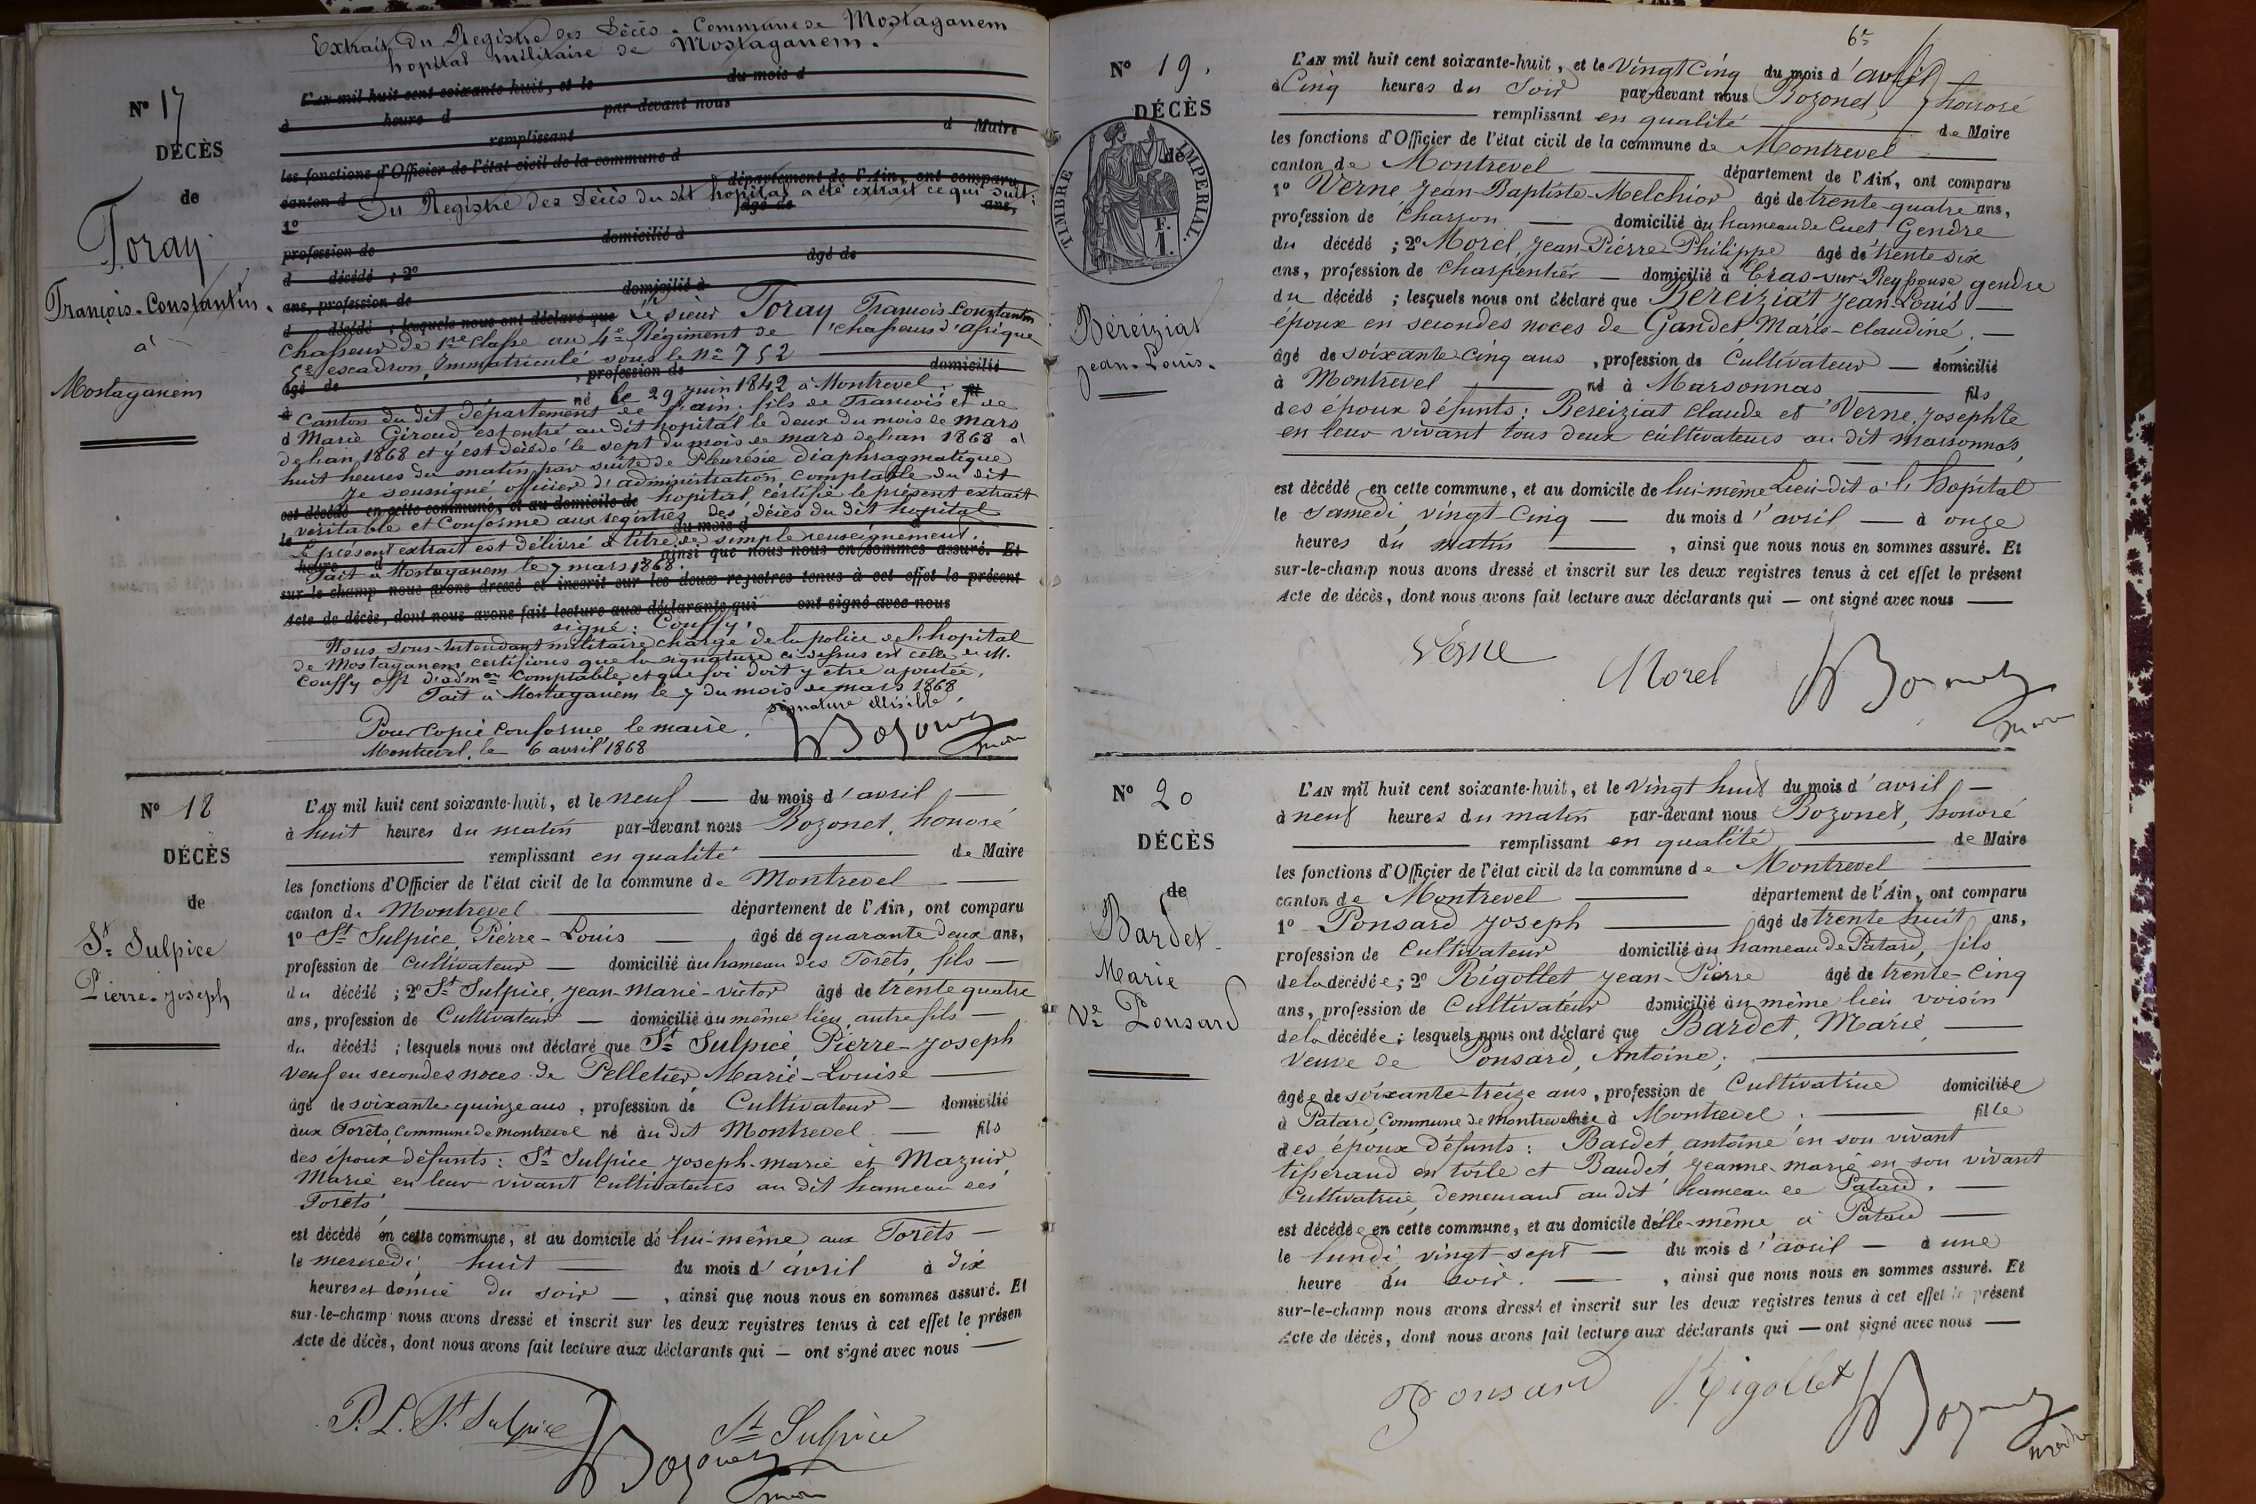 Extrait Du Registre des Décès. Commune de Mostaganem
hopital militaire de Mostaganem.
N° 17
DÉCÈS
de
Foray
François-Constantin.
à
Mostaganem
L'AN mil huit cent soixante-huit, et le du mois d
à heure d par-devant nous
remplissant d Maire
les fonctions d'Officier de l'état civil de la commune d
canton d département de l'Ain, ont comparu
Du Registre des Décès du dit hopital a été extrait ce qui suit:
1° âgé de ans,
profession de domicilié à
d décédé ; 2° âgé de
ans, profession de domicilié à
d décédé ; lesquels nous ont déclaré que Le sieur Foray François-Constantin
Chasseur de 1re classe au 4e Régiment de Chasseurs d'afrique
5e escadron, Immatriculé sous le N° 752
âgé de , profession de domicilié
à né le 29 juin 1842 à Montrevel. fil
Canton du dit département de l'ain. fils de François et de
d Marie Giroud, est entré au dit hopital le deux du mois de Mars
de l'an 1868 et y est décédé le sept du mois de mars de l'an 1868 à
huit heures du matin par suite de Pleurésie diaphragmatique
Je soussigné officier d'administration comptable du dit
est décédé en cette commune, et au domicile de hopital, certifie le présent extrait
véritable et conforme aux registres des décès du dit hopital
le du mois d à
Le présent extrait est délivré à titre de simple renseignement.
heure d ainsi que nous nous en sommes assuré. Et
Fait à Mostaganem le 7 mars 1868.
sur-le-champ nous avons dressé et inscrit sur les deux registres tenus à cet effet le présent
Acte de décès, dont nous avons fait lecture aux déclarants qui ont signé avec nous
signé: Couffy.
Nous sous-Intendant militaire chargé de la police de l'hopital
de Mostaganem certifions que la signature ci-dessus est celle de M.
Couffy off. d'adm.on Comptable et que foi doit y être ajoutée.
Fait à Mostaganem le 7 du mois de mars 1868
signature illisible.
Pour copie conforme, le maire.
Montrevel, le 6 avril 1868
Bozonet
maire
N° 18
DÉCÈS
de
St Sulpice
Pierre-Joseph
L'AN mil huit cent soixante-huit, et le neuf du mois d'avril
à huit heures du matin par-devant nous Bozonet, honoré
remplissant en qualité de Maire
les fonctions d'Officier de l'état civil de la commune de Montrevel
canton de Montrevel département de l'Ain, ont comparu
1° St Sulpice, Pierre-Louis âgé de quarante deux ans,
profession de Cultivateur domicilié au hameau des Forêts, fils
du décédé ; 2° St Sulpice, Jean-Marie-Victor âgé de trente quatre
ans, profession de Cultivateur domicilié au même lieu, autre fils
du décédé ; lesquels nous ont déclaré que St Sulpice, Pierre-Joseph
veuf en secondes noces de Pelletier, Marie-Louise
âgé de soixante quinze ans, profession de Cultivateur domicilié
aux Forêts, Commune de Montrevel né au dit Montrevel fils
des époux défunts: St Sulpice Joseph-marie et Mazuir,
Marie en leur vivant Cultivateurs au dit hameau des
Forêts
est décédé en cette commune, et au domicile de lui-même aux Forêts
le mercredi, huit du mois d'avril à dix
heures et demie du soir , ainsi que nous nous en sommes assuré. Et
sur-le-champ nous avons dressé et inscrit sur les deux registres tenus à cet effet le présen
Acte de décès, dont nous avons fait lecture aux déclarants qui ont signé avec nous
P. L. St Sulpice St Sulpice
Bozonet
maire
6e
N° 19.
DÉCÈS
de
TIMBRE IMPERIAL.
F.
1.
Béréiziat
Jean-Louis.
L'AN mil huit cent soixante-huit, et le Vingt Cinq du mois d'avril
à Cinq heures du Soir par-devant nous Bozonet, honoré
remplissant en qualité de Maire
les fonctions d'Officier de l'état civil de la commune de Montrevel
canton de Montrevel département de l'Ain, ont comparu
1° Verne Jean-Baptiste-Melchior âgé de trente-quatre ans,
profession de Charron domicilié au hameau de Cuet Gendre
du décédé ; 2° Morel, Jean-Pierre-Philippe âgé de trente six
ans, profession de Charpentier domicilié à Cras-sur-Reyssouse gendre
du décédé ; lesquels nous ont déclaré que Béreiziat Jean-Louis
époux en secondes noces de Gandet Marie-claudine.
âgé de soixante cinq ans , profession de Cultivateur domicilié
à Montrevel né à Marsonnas fils
des époux défunts: Béreiziat Claude et Verne, Josephte
en leur vivant tous deux cultivateurs au dit Marsonnas,
est décédé en cette commune, et au domicile de lui-même Lieu-dit à l'hopital
le samedi vingt-cinq du mois d'avril à onze
heures du matin , ainsi que nous nous en sommes assuré. Et
sur-le-champ nous avons dressé et inscrit sur les deux registres tenus à cet effet le présent
Acte de décès, dont nous avons fait lecture aux déclarants qui ont signé avec nous
Verne Morel Bozonet
maire
N° 20
DÉCÈS
de
Bardet
Marie
Ve Ponsard
L'AN mil huit cent soixante-huit, et le Vingt huit du mois d'avril
à neuf heures du matin par-devant nous Bozonet, honoré
remplissant en qualité de Maire
les fonctions d'Officier de l'état civil de la commune de Montrevel
canton de Montrevel département de l'Ain, ont comparu
1° Ponsard Joseph âgé de trente huit ans,
profession de Cultivateur domicilié au hameau de Patard, fils
de la décédée; 2° Rigollet Jean-Pierre âgé de trente-Cinq
ans, profession de Cultivateur domicilié au même lieu voisin
de la décédée; lesquels nous ont déclaré que Bardet, Marie
Veuve de Ponsard, Antoine;
âgée de soixante-treize ans, profession de Cultivatrice domiciliée
à Patard, Commune de Montrevel née à Montrevel fille
des époux défunts: Bardet antoine en son vivant
tisserand en toile et Baudet Jeanne-marie en son vivant
Cultivatrice, demeurant au dit hameau de Patard.
est décédée en cette commune, et au domicile d'elle-même à Patard
le lundi vingt-sept du mois d'avril à une
heure du soir. , ainsi que nous nous en sommes assuré. Et
sur-le-champ nous avons dressé et inscrit sur les deux registres tenus à cet effet le présent
Acte de décès, dont nous avons fait lecture aux déclarants qui ont signé avec nous
Ponsard Rigollet Bozonet
maire